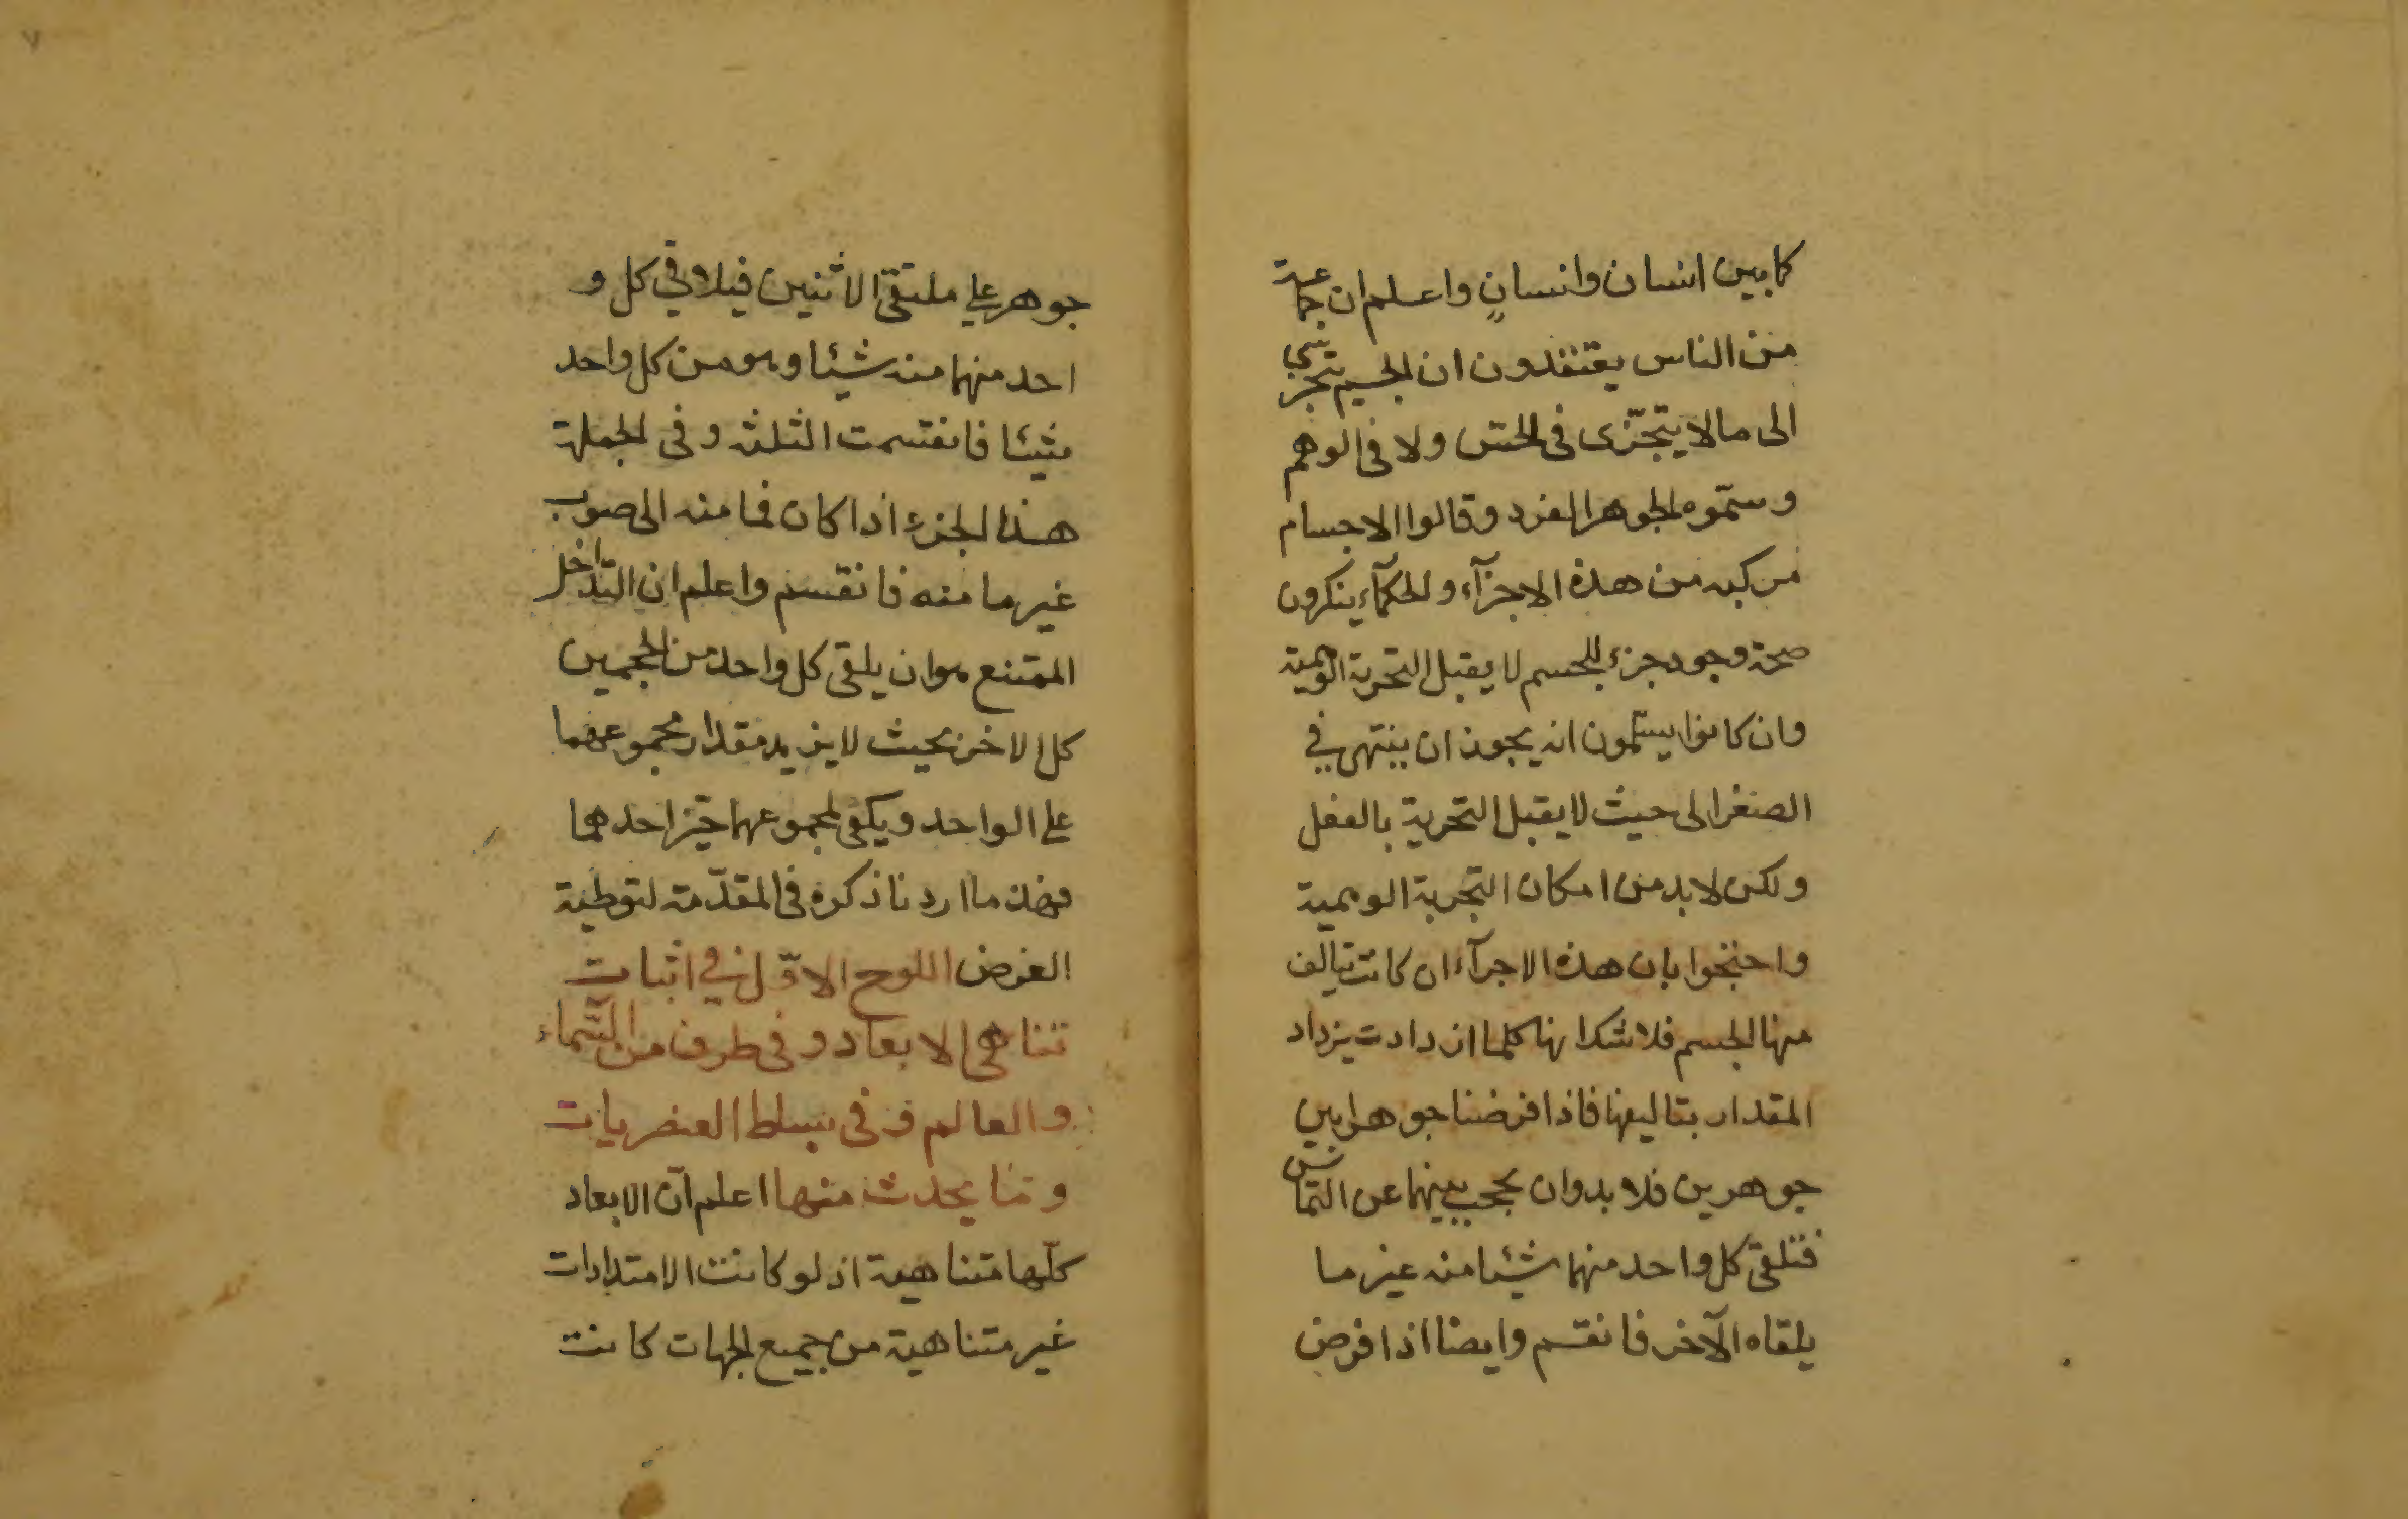 كما بين انسان وانسانٍ واعلم ان جماعة
من الناس يعتقدون ان الجسم يتجزى
الى ما لا يتجزّى فى الحسّ ولا فى الوهم
وسمّوه الجوهر الفرد وقالوا الاجسام
مركبه من هذه الاجزآء والحكمآء ينكرون
صحة وجود جزء للجسم لا يقبل التجزية الوهمية
وان كانوا يسلّمون انه يجوز ان ينتهى في
الصغر الى حيث لا يقبل التجزية بالفعل
ولكن لا بد من امكان التجزية الوهمية
واحتجوا بان هذه الاجزآء ان كانت تتالف
منها الجسم فلا شك انها كلما ازدادت يزداد
المقدار بتاليفها فاذا فرضنا جوهرا بين
جوهرين فلا بد وان يحجب بينهما عن التماس
فتلقى كل واحد منهما شيئا منه غير ما
يلقاه الآخر فانقسم وايضا اذا فرض
جوهر على ملتقى الاثنين فيلاقي كل و
احد منهما منه شيئا وهو من كل واحد
شيئا فانقسمت الثلثه وفى الجملة
هذا الجزء اذا كان فما منه الى صوب
غير ما منه فانقسم واعلم ان التداخل
الممتنع هو ان يلقى كل واحد من الحجمين
كل الاخر بحيث لا يزيد مقدار مجموعهما
على الواحد ويكفى لمجموعهما حيّز احدهما
فهذا ما اردنا ذكره فى المقدّمة لتوطية
الغرض اللوح الاوّل في اثبات
تناهى الابعاد وفى طرف من السّماء
والعالم وفى بسائط العنصريات
وما يحدث منها اعلم ان الابعاد
كلّها متناهية اذ لو كانت الامتدادات
غير متناهية من جميع الجهات كانت